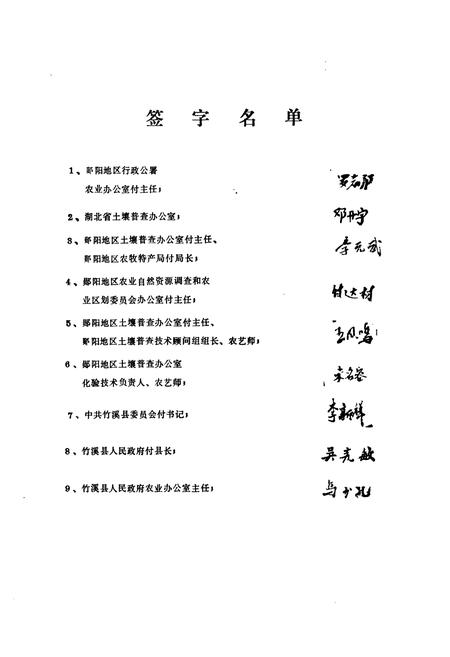 签字名单
1、郧阳地区行政公署
农业办公室付主任；
2、湖北省土壤普查办公室；
邓丹宇
3、郧阳地区土壤普查办公室付主任、
郧阳地区农牧特产局付局长；
李元武
4、郧阳地区农业自然资源调查和农
业区划委员会办公室付主任；
甘达材
5、郧阳地区土壤普查办公室付主任、
郧阳地区土壤普查技术顾问组组长、农艺师；
王凤鸣
6、郧阳地区土壤普查办公室
化验技术负责人、农艺师；
7、中共竹溪县委员会付书记；
李新祥
8、竹溪县人民政府付县长；
吴光敏
9、竹溪县人民政府农业办公室主任；